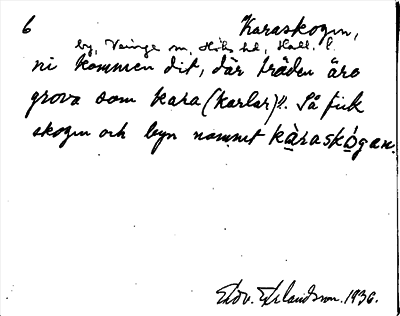 6 Karaskogen,
by, Veinge sn, Höks hd, Hall. l.
ni kommen dit, där träden äro
grova som kara (karlar)". Så fick
skogen och byn namnet kàraskógan.
Edv. Erlandsson. 1936.